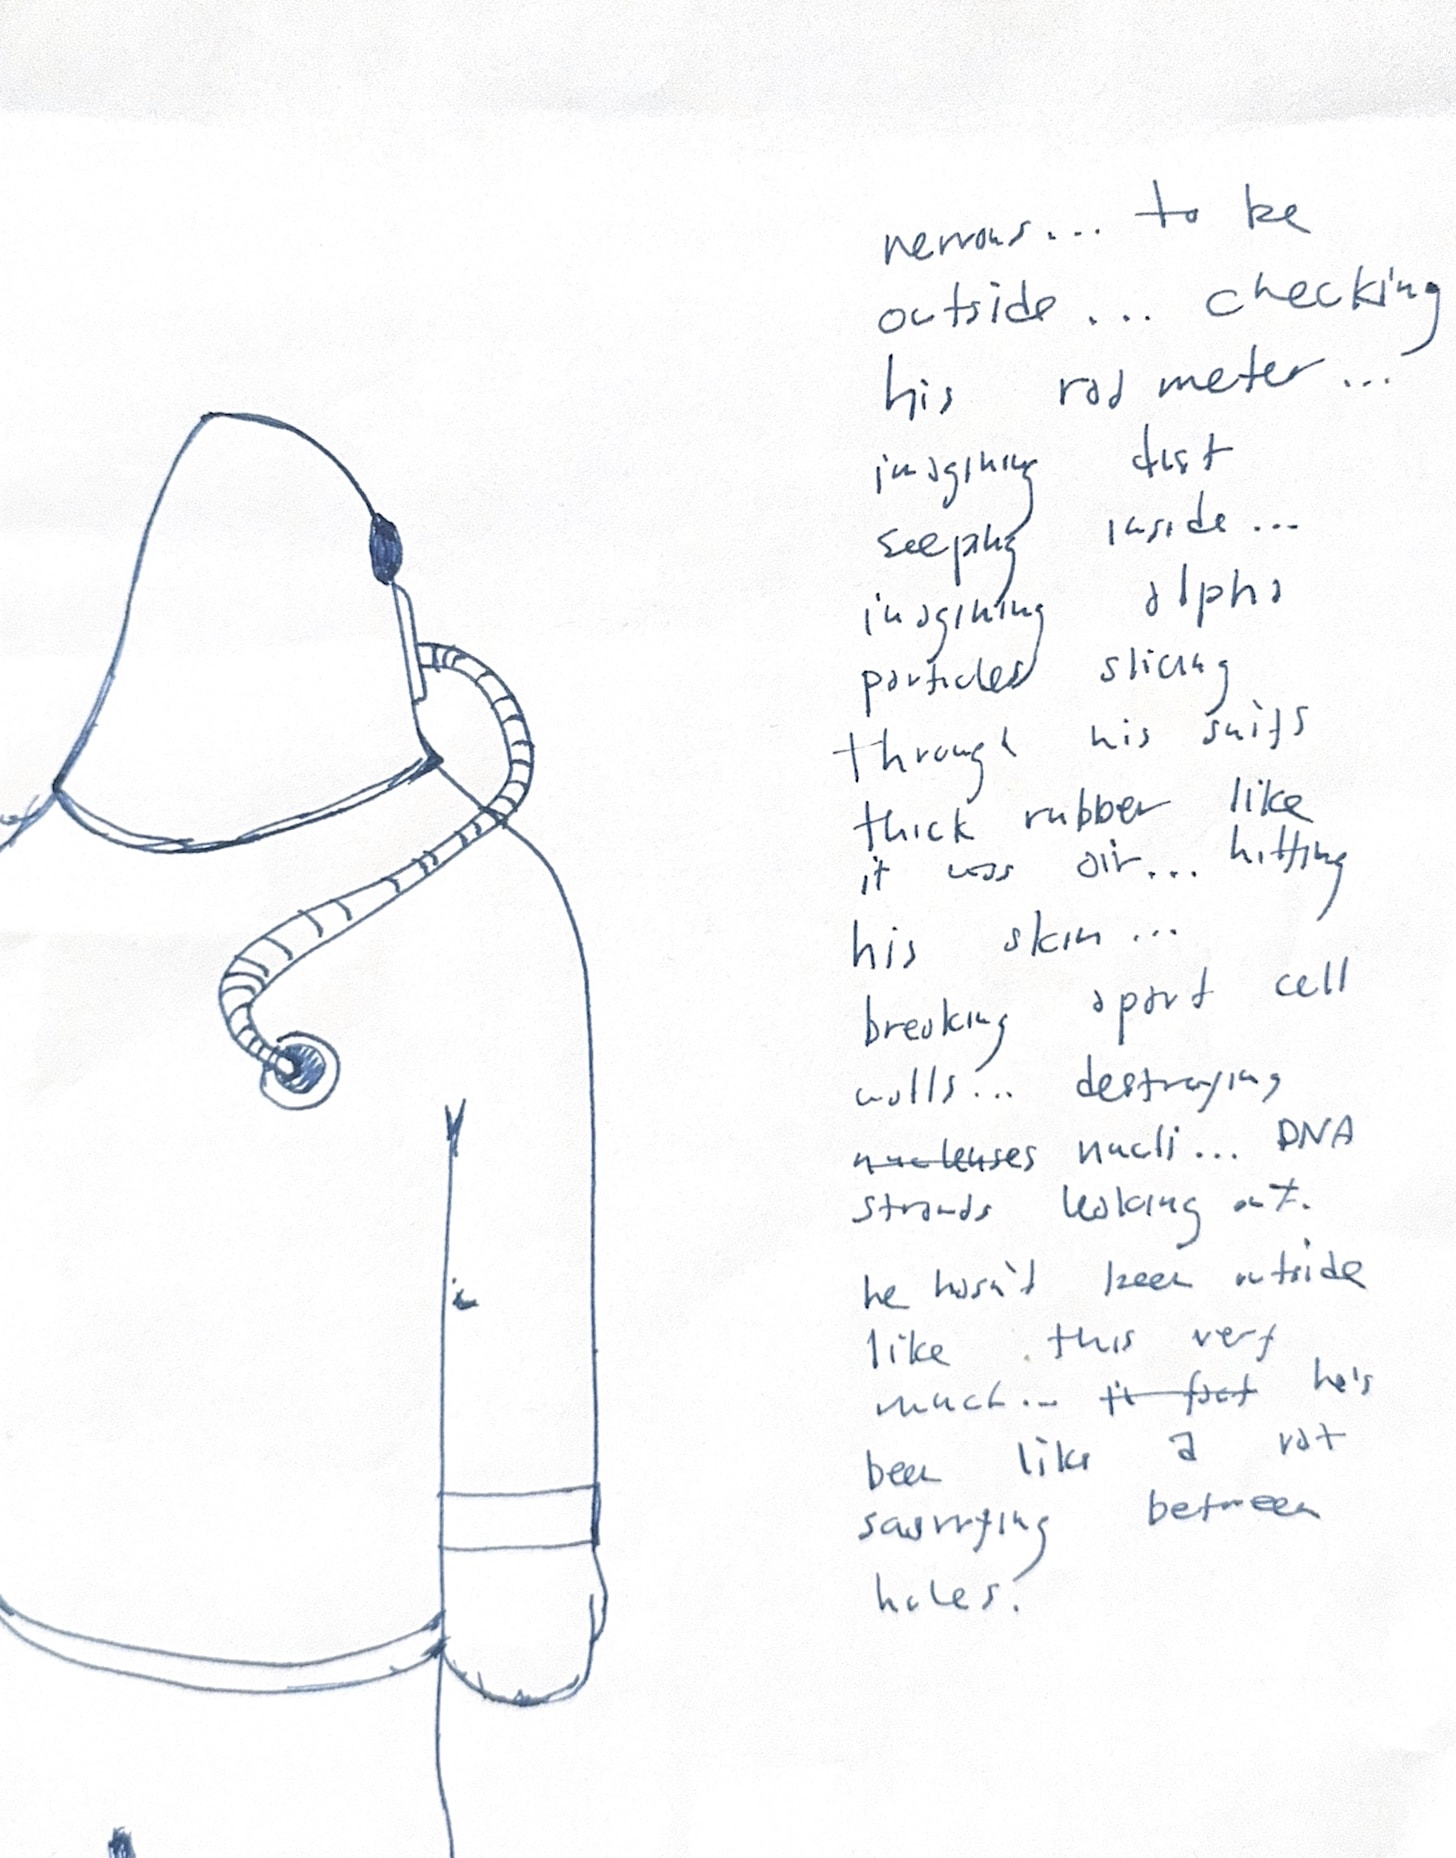 nervous... to be
outside... checking
his rad meter...
imagining dust
seeping inside...
imagining alpha
particles slicing
through his suits
thick rubber like
it was air... hitting
his skin...
breaking apart cell
walls... destroying
nucleuses nucli... DNA
strands leaking out.
he hasn't been outside
like this very
much... in fact he's
been like a rat
scurrying between
holes.